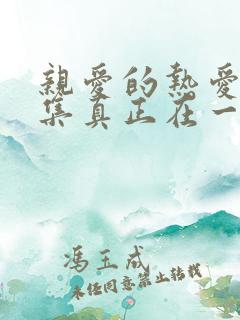 親愛的熱愛
集真正在一
馮玉成
未經同意禁止轉載